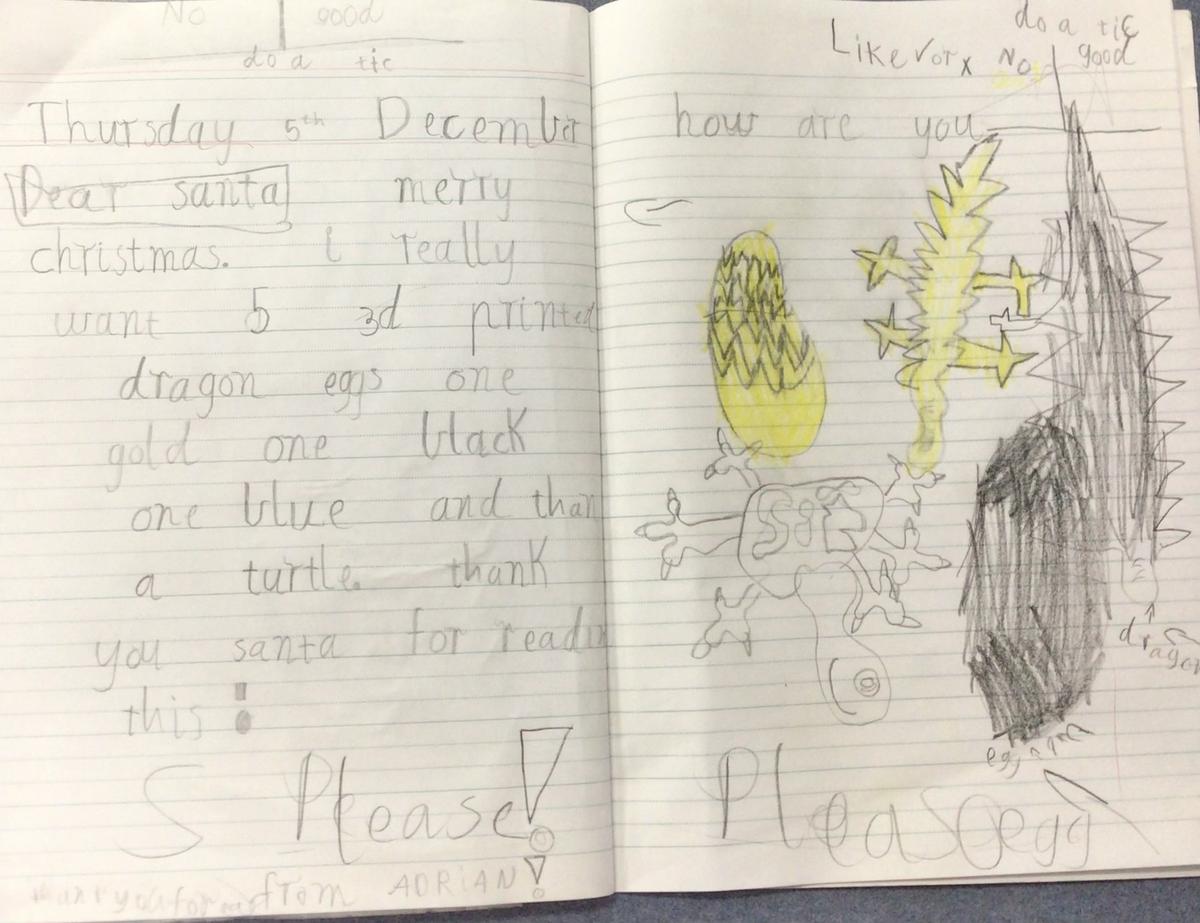 No good
do a tic
Thursday 5th December
Dear santa merry
christmas. i really
want 5 3d printed
dragon eggs one
gold one black
one blue and than
a turtle. thank
you santa for readin
this!
S Please!
from ADRIAN!
do a tic
Like √ or x No good
how are you
dragon
egg
Please egg